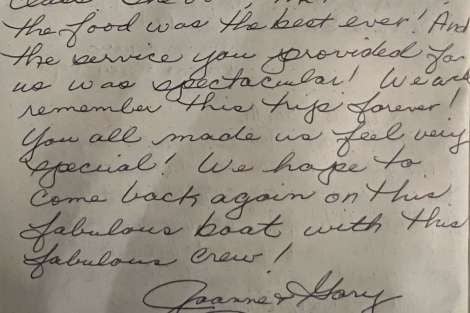 the food was the best ever! And
the service you provided for
us was spectacular! We and
remember this trip forever!
You all made us feel very
special! We hope to
come back again on this
fabulous boat with this
fabulous crew!
Joanne & Gary